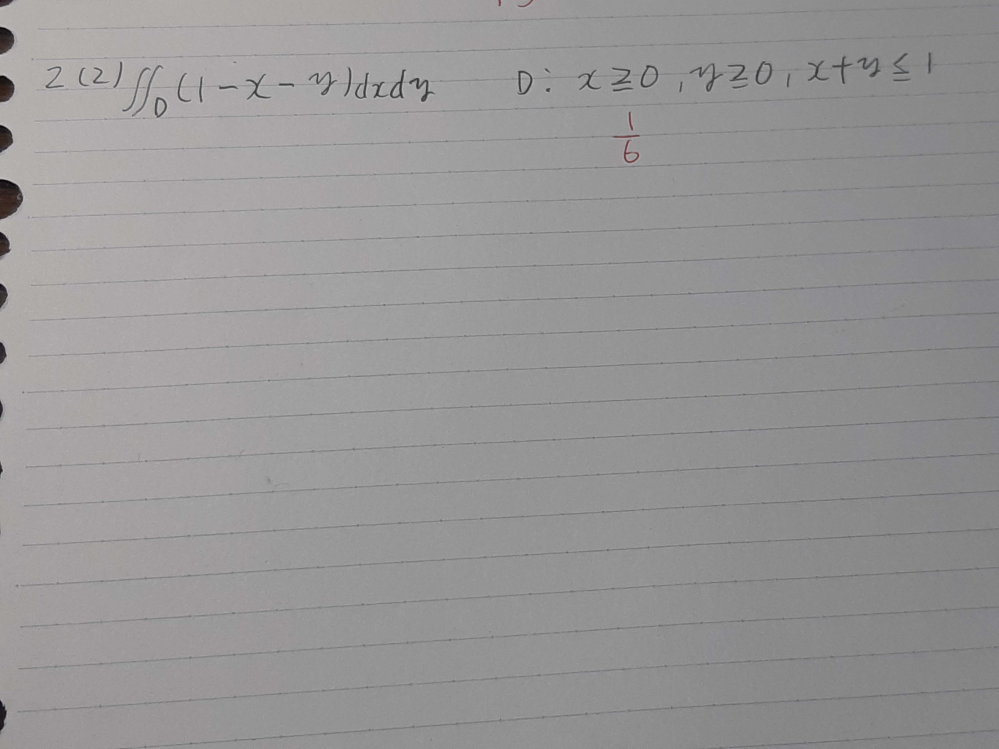 2(2) ∬_D (1-x-y)dxdy D: x≧0, y≧0, x+y≦1
1/6